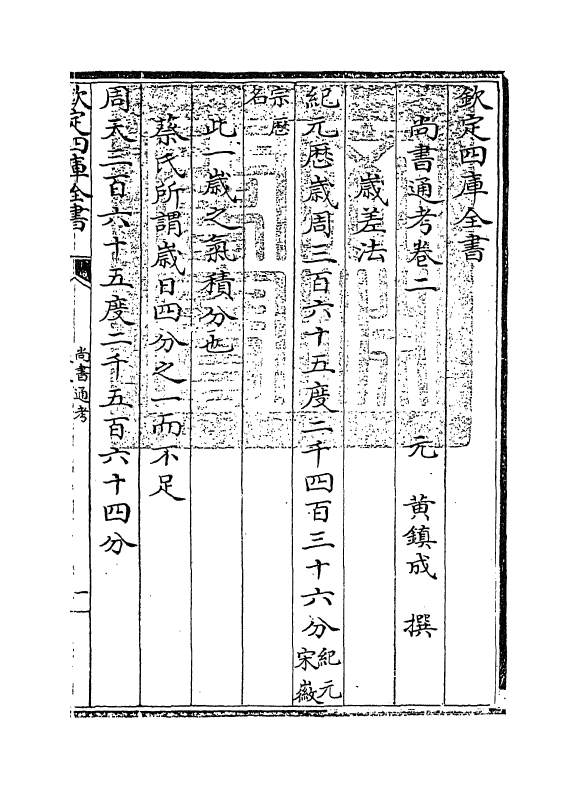 欽定四庫全書
尚書通考卷二　元　黄鎮成　撰
歲差法
紀元厯歲周三百六十五度二千四百三十六分紀元宋徽
宗厯名
此一歲之氣積分也
蔡氏所謂歲日四分之一而不足
周天三百六十五度二千五百六十四分
欽定四庫全書
尚書通考
一